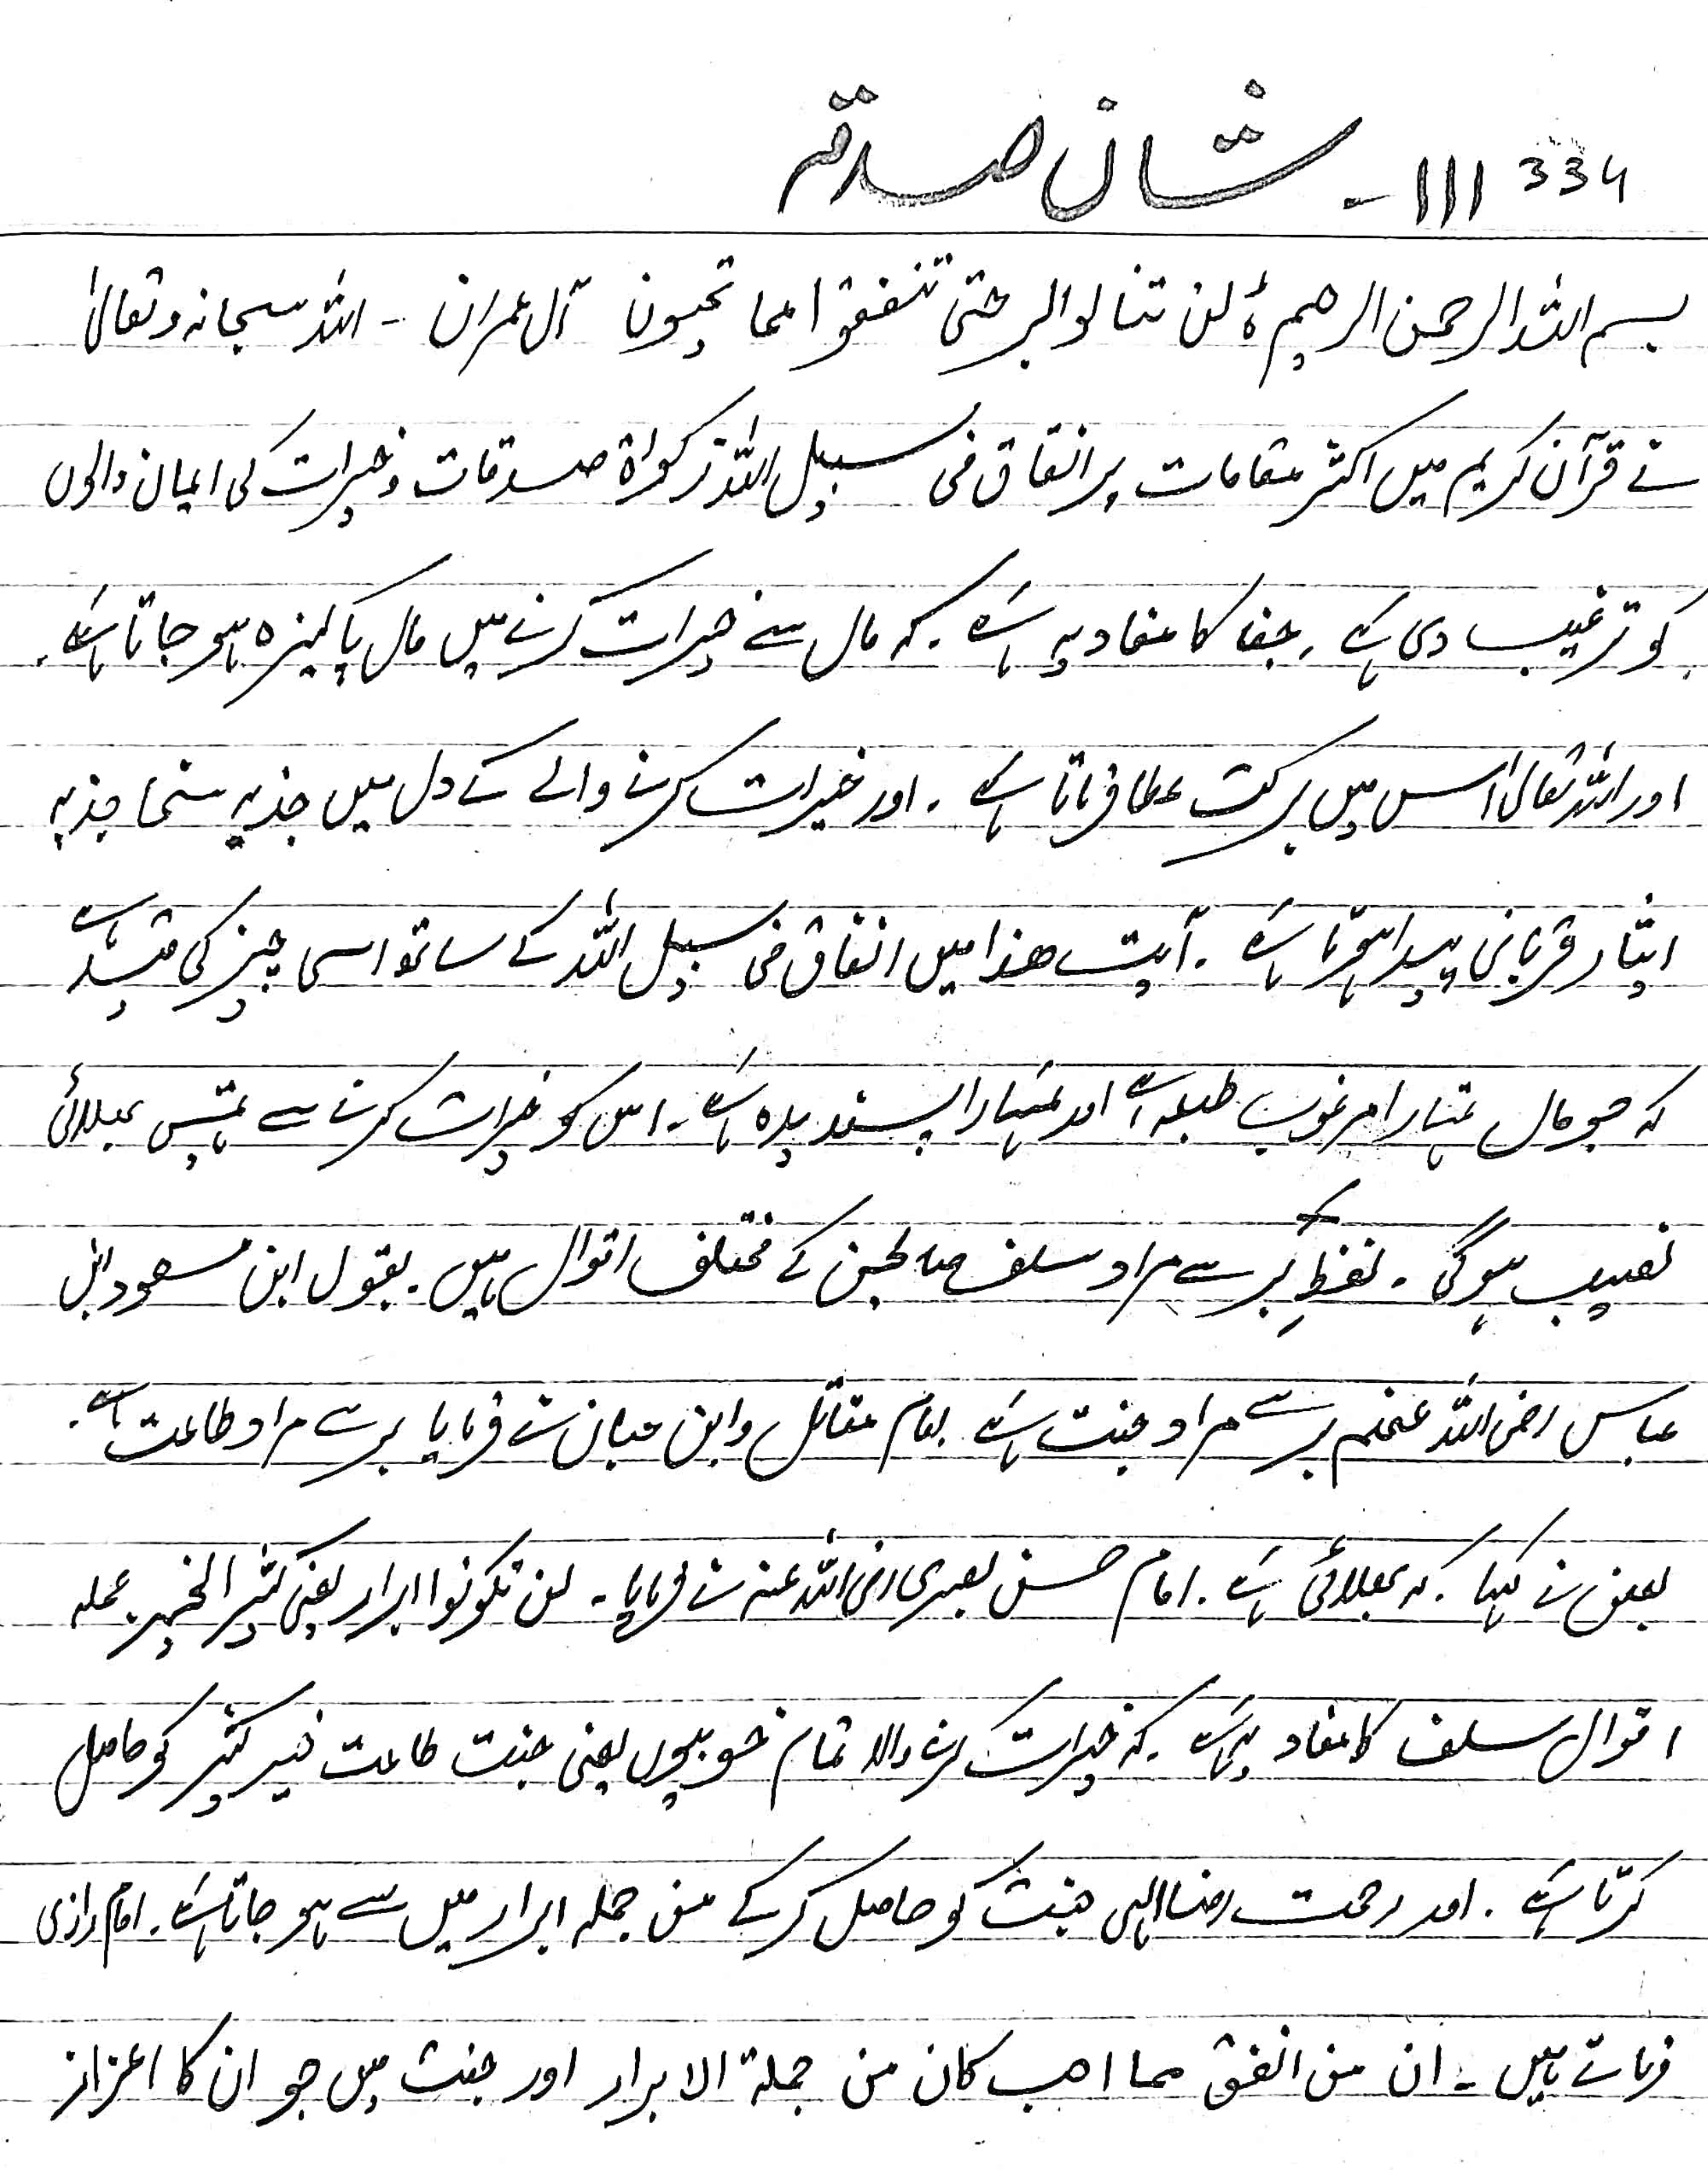 334 111 - شان صدقہ
بسم اللہ الرحمن الرحیم ہٗ لن تنا لو البر حتی تنفقوا مما تحبون آل عمران - اللہ سبحانہ و تعالیٰ
نے قرآن کریم میں اکثر مقامات پر انفاق فی سبیل اللہ زکواۃ صدقات و خیرات کی ایمان والوں
کو ترغیب دی ہے ۔ جفا کا مفاد یہ ہے ۔ کہ مال سے خیرات کرنے میں مال پاکیزہ ہو جاتا ہے ۔
اور اللہ تعالیٰ اس میں برکت عطا فرماتا ہے ۔ اور خیرات کرنے والے کے دل میں جذبہ سخا جذبہ
ایثار قربانی پیدا ہوتا ہے ۔ آیت ھذا میں انفاق فی سبیل اللہ کے ساتھ اسی چیز کی قید ہے
کہ جو مال تمہارا مرغوب طبعہ ہے اور تمہارا پسندیدہ ہے ۔ اس کو خیرات کرنے سے تمہیں بھلائی
نصیب ہوگی ۔ لفظِ بر سے مراد سلف صالحین کے مختلف اقوال ہیں ۔ بقول ابن مسعود ابن
عباس رضی اللہ عنھم بر سے مراد جنت ہے امام مقاتل و ابن حبان نے فرمایا بر سے مراد طاعت ہے ۔
بعض نے کہا ۔ کہ بھلائی ہے ۔ امام حسن بصری رضی اللہ عنہ نے فرمایا ۔ لن تکونوا ابرار یعنی کثیر الخیر ۔ جملہ
اقوال سلف کا مفاد یہ ہے ۔ کہ خیرات کرنے والا تمام خوبیوں یعنی جنت طاعت خیر کثیر کو حاصل
کرتا ہے ۔ اور رحمت رضا الہی جنت کو حاصل کرکے من جملہ ابرار میں سے ہو جاتا ہے ۔ امام رازی
فرماتے ہیں ۔ ان من انفق مما احب کان من جملۃ الابرار اور جنت میں جو ان کا اعزاز